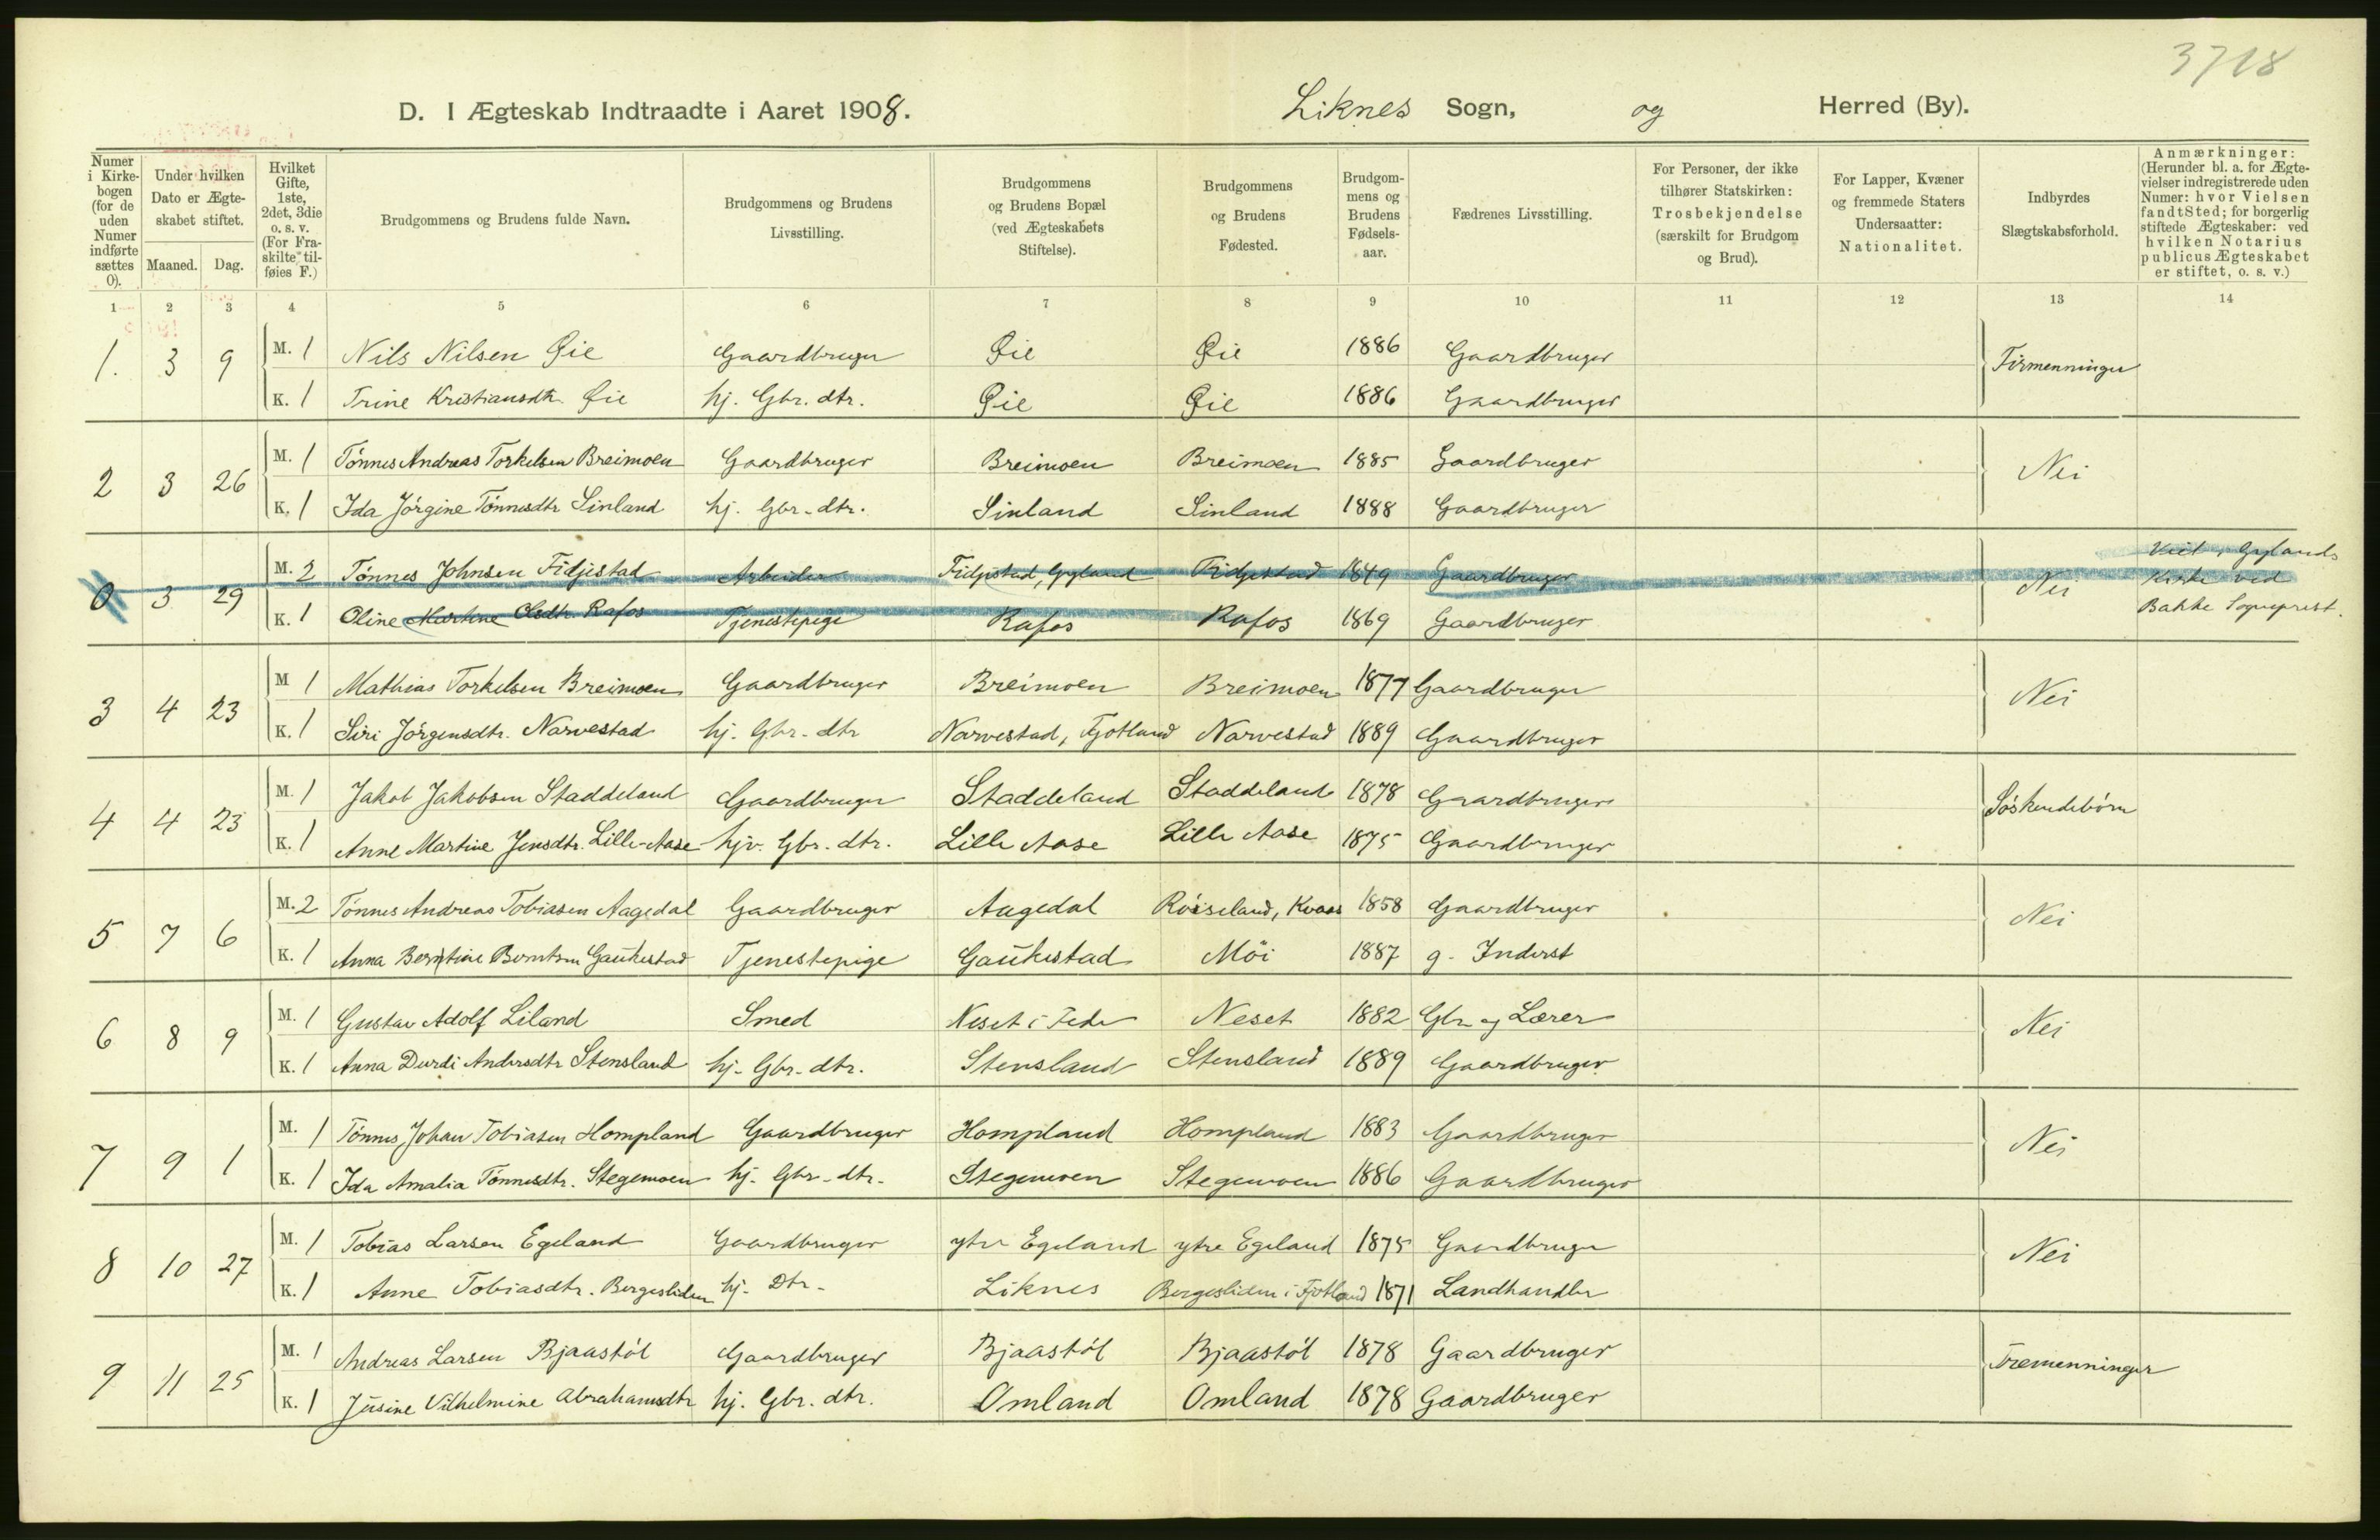 3718
D. I Ægteskab Indtraadte i Aaret 1908. Liknes Sogn, og Herred (By).
Numer i Kirkebogen (for de uden Numer indførte sættes 0).
Under hvilken Dato er Ægteskabet stiftet.
Maaned. Dag.
Hvilket Gifte, 1ste, 2det, 3die o. s. v. (For Fraskilte tilføies F.)
Brudgommens og Brudens fulde Navn.
Brudgommens og Brudens Livsstilling.
Brudgommens og Brudens Bopæl (ved Ægteskabets Stiftelse).
Brudgommens og Brudens Fødested.
Brudgommens og Brudens Fødselsaar.
Fædrenes Livsstilling.
For Personer, der ikke tilhører Statskirken: Trosbekjendelse (særskilt for Brudgom og Brud).
For Lapper, Kvæner og fremmede Staters Undersaatter: Nationalitet.
Indbyrdes Slægtskabsforhold.
Anmærkninger: (Herunder bl. a. for Ægtevielser indregistrerede uden Numer: hvor Vielsen fandt Sted; for borgerlig stiftede Ægteskaber: ved hvilken Notarius publicus Ægteskabet er stiftet, o. s. v.)
1 2 3 4 5 6 7 8 9 10 11 12 13 14
1. 3 9 M. 1 Nils Nilsen Øie Gaardbruger Øie Øie 1886 Gaardbruger Firmenninger
K. 1 Trine Kristiansdtr. Øie hj. Gbr. dtr. Øie Øie 1886 Gaardbruger
2 3 26 M. 1 Tönnes Andreas Torkelsen Breimoen Gaardbruger Breimoen Breimoen 1885 Gaardbruger Nei
K. 1 Ida Jörgine Tönnesdtr Sinland hj. Gbr. dtr. Sinland Sinland 1888 Gaardbruger
0 3 29 M. 2 Tönnes Johnsen Fidjestad Arbeider Fidjestad, Gyland Fidjestad 1849 Gaardbruger Nei Viet i Gylands Kirke ved
K. 1 Oline Martine Olsdtr. Rafos Tjenestepige Rafos Rafos 1869 Gaardbruger Bakke Sogneprest.
3 4 23 M 1 Mathias Torkelsen Breimoen Gaardbruger Breimoen Breimoen 1877 Gaardbruger Nei
K. 1 Siri Jörgensdtr. Narvestad hj. Gbr. dtr Narvestad, Fjotland Narvestad 1889 Gaardbruger
4 4 23 M. 1 Jakob Jakobsen Staddeland Gaardbruger Staddeland Staddeland 1878 Gaardbruger Söskendebörn
K. 1 Anne Martine Jensdtr. Lille-Aase hjv. Gbr. dtr. Lille Aase Lille Aase 1875 Gaardbruger
5 7 6 M. 2 Tönnes Andreas Tobiasen Aagedal Gaardbruger Aagedal Röiseland, Kvaas 1858 Gaardbruger Nei
K. 1 Anna Berntine Berntsen Gaukestad Tjenestepige Gaukestad Möi 1887 g. Inderst
6 8 9 M. 1 Gustav Adolf Liland Smed Neset i Feda Neset 1882 Gbr og Lærer Nei
K. 1 Anna Durdi Andersdtr Stensland hj. Gbr. dtr. Stensland Stensland 1889 Gaardbruger
7 9 1 M. 1 Tönnes Johan Tobiasen Hompland Gaardbruger Hompland Hompland 1883 Gaardbruger Nei
K. 1 Ida Amalia Tönnesdtr. Stegemoen hj. Gbr. dtr. Stegemoen Stegemoen 1886 Gaardbruger
8 10 27 M. 1 Tobias Larsen Egeland Gaardbruger ytre Egeland ytre Egeland 1875 Gaardbruger Nei
K. 1 Anne Tobiasdtr. Bergesliden hj. Dtr. Liknes Bergesliden i Fjotland 1871 Landhandler
9 11 25 M. 1 Andreas Larsen Bjaastöl Gaardbruger Bjaastöl Bjaastöl 1878 Gaardbruger Tremenninger
K. 1 Jusine Vilhelmine Abrahamsdtr hj. Gbr. dtr. Omland Omland 1878 Gaardbruger